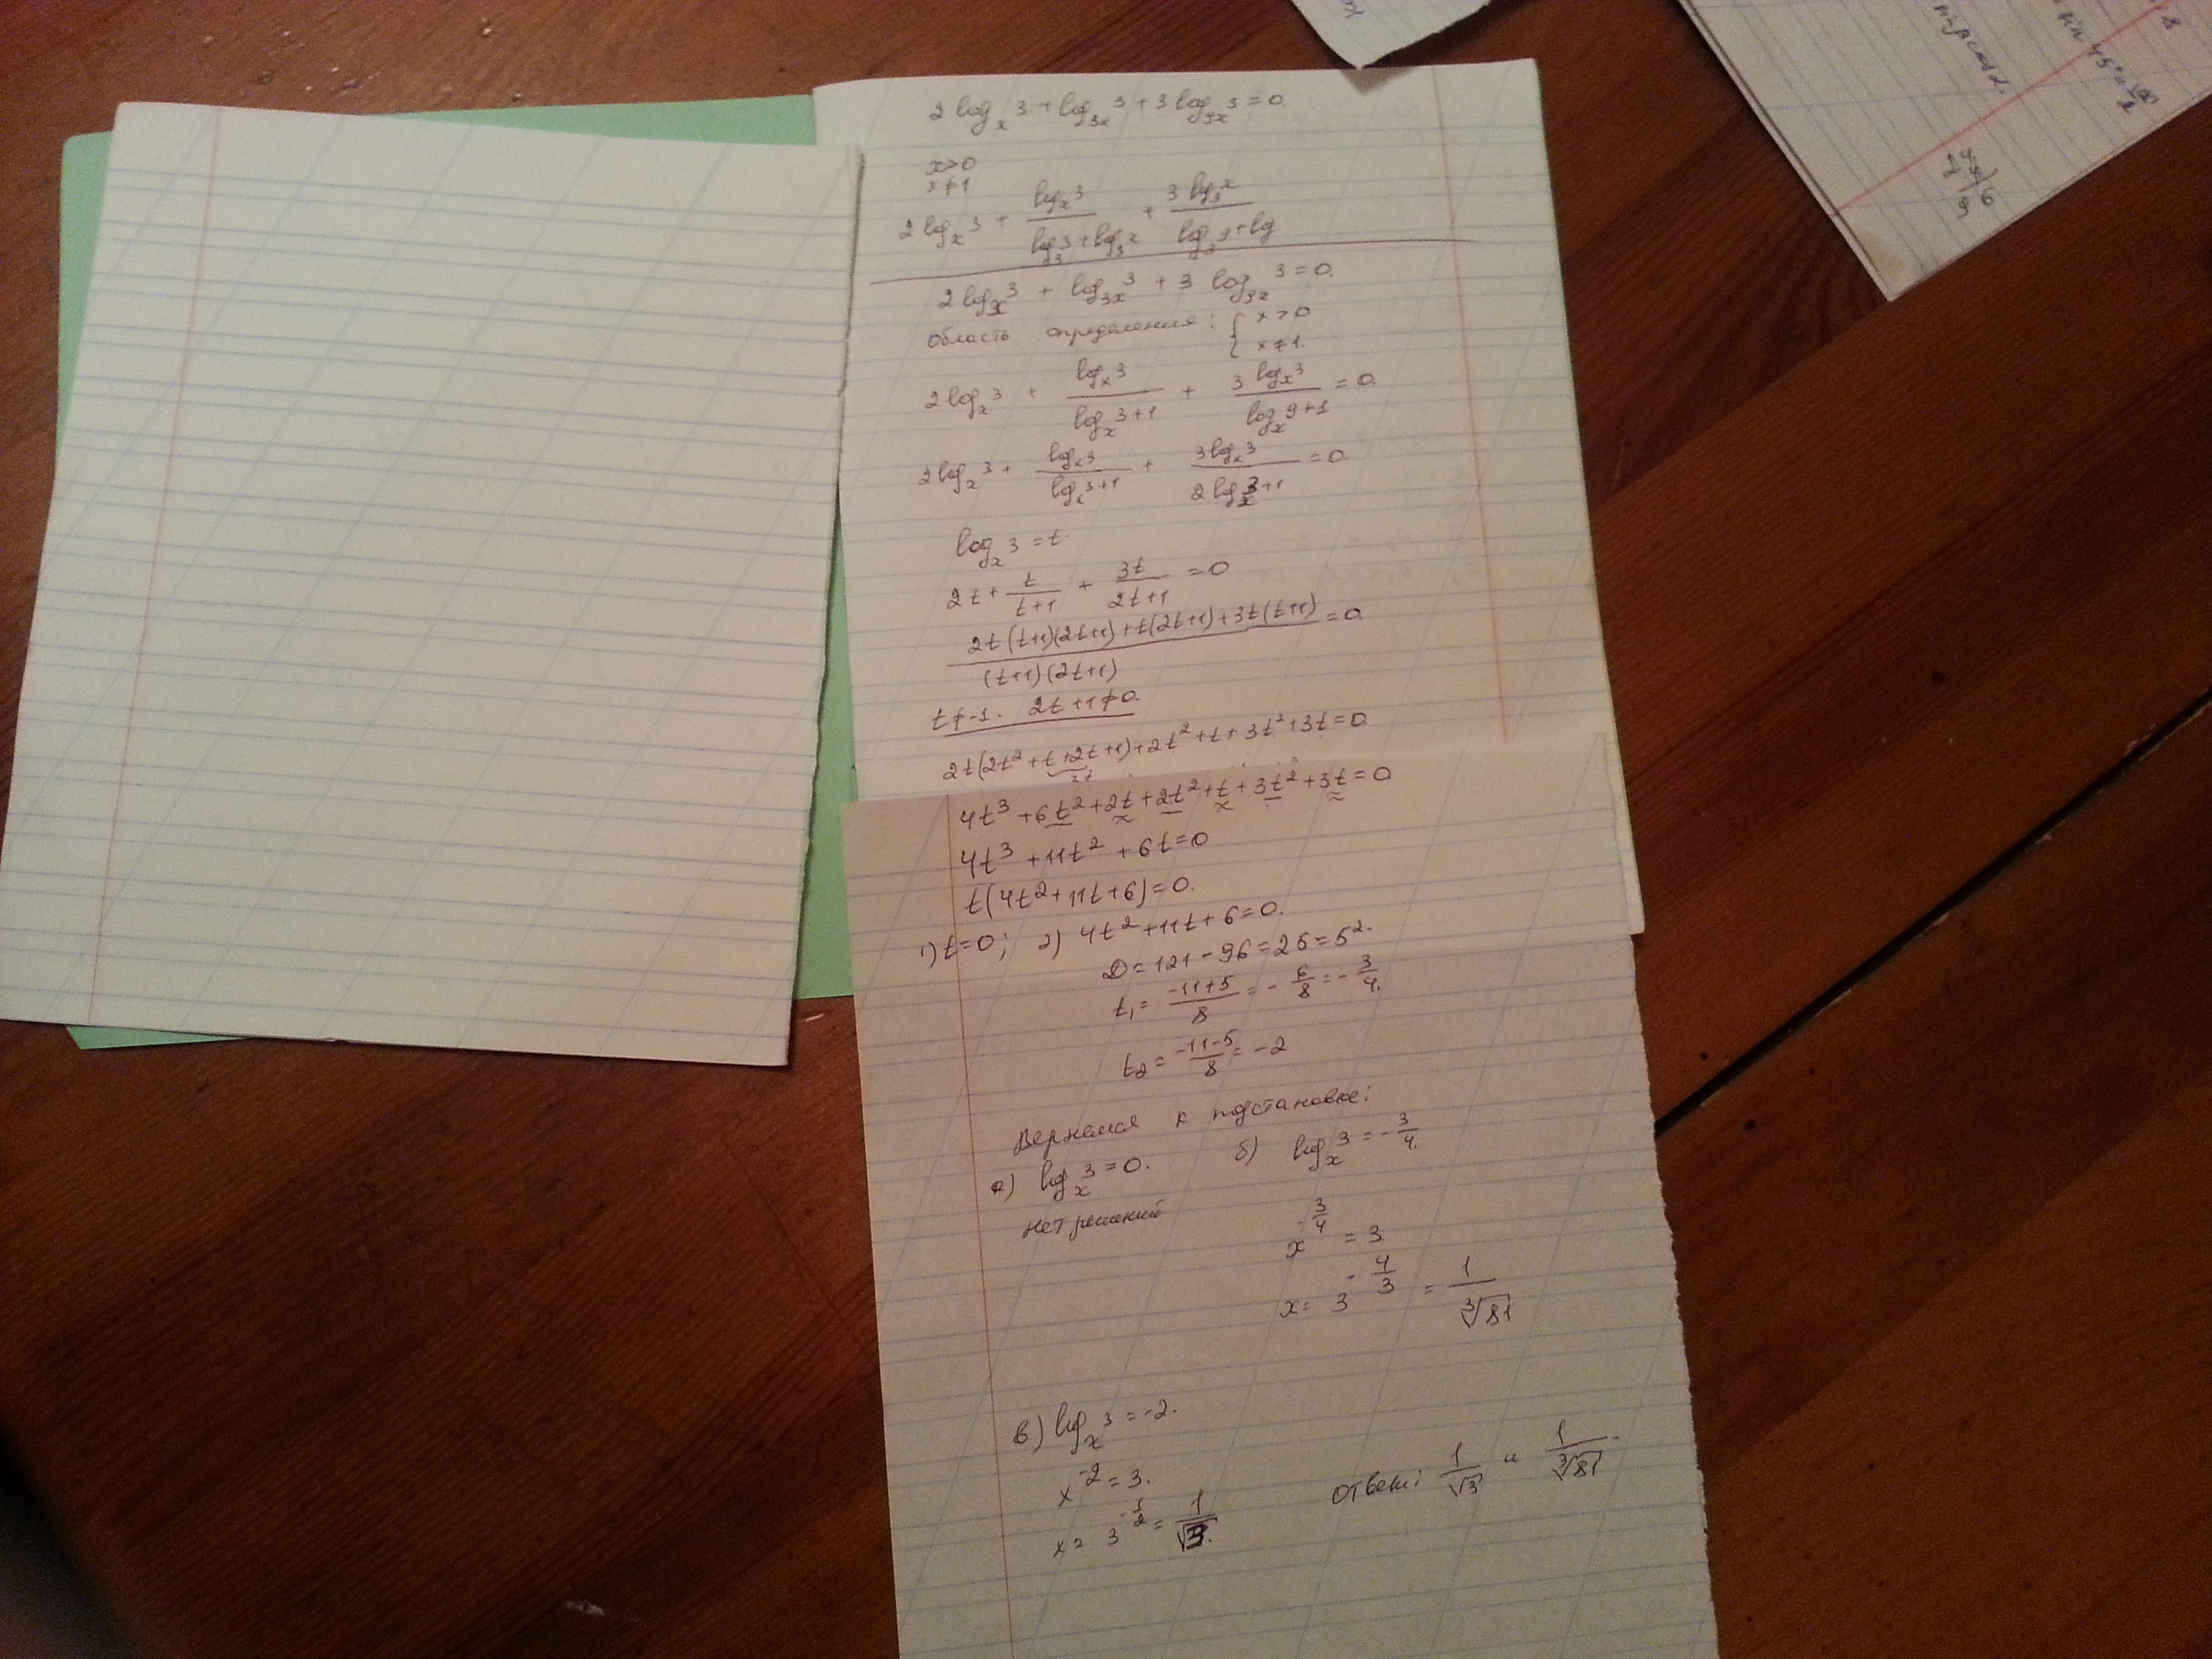 2 log_x 3 + log_{3x} 3 + 3 log_{9x} 3 = 0
x>0
x≠1
2 log_x 3 + \frac{log_x 3}{log_3 3 + log_3 x} + \frac{3 log_3 x}{log_3 9 + log}
2 log_x 3 + log_{3x} 3 + 3 log_{9x} 3 = 0.
Область определения: { x>0
x≠1.
2 log_x 3 + \frac{log_x 3}{log_x 3+1} + \frac{3 log_x 3}{log_x 9+1} = 0.
2 log_x 3 + \frac{log_x 3}{log_x 3+1} + \frac{3 log_x 3}{2 log_x 3+1} = 0.
log_x 3 = t.
2t + \frac{t}{t+1} + \frac{3t}{2t+1} = 0
\frac{2t(t+1)(2t+1)+t(2t+1)+3t(t+1)}{(t+1)(2t+1)} = 0.
t≠-1. 2t+1≠0.
2t(2t²+t+2t+1)+2t²+t+3t²+3t=0
3t
4t³+6t²+2t+2t²+t+3t²+3t=0
4t³+11t²+6t=0
t(4t²+11t+6)=0.
1) t=0; 2) 4t²+11t+6=0.
D=121-96=25=5².
t₁= \frac{-11+5}{8} = -\frac{6}{8} = -\frac{3}{4}.
t₂= \frac{-11-5}{8} = -2
Вернемся к подстановке:
а) log_x 3=0. б) log_x 3=-\frac{3}{4}.
нет решений
x^{-\frac{3}{4}} = 3
x= 3^{-\frac{4}{3}} = \frac{1}{\sqrt[3]{81}}
в) log_x 3=-2.
x^{-2}=3.
x= 3^{-\frac{1}{2}} = \frac{1}{\sqrt{3}}.
Ответ: \frac{1}{\sqrt{3}} и \frac{1}{\sqrt[3]{81}}.